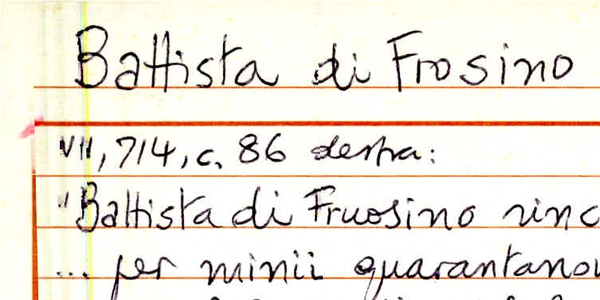 Battista di Frosino
VII, 714, c. 86 destra:
"Battista di Fruosino rinc
... per minii quarantanov